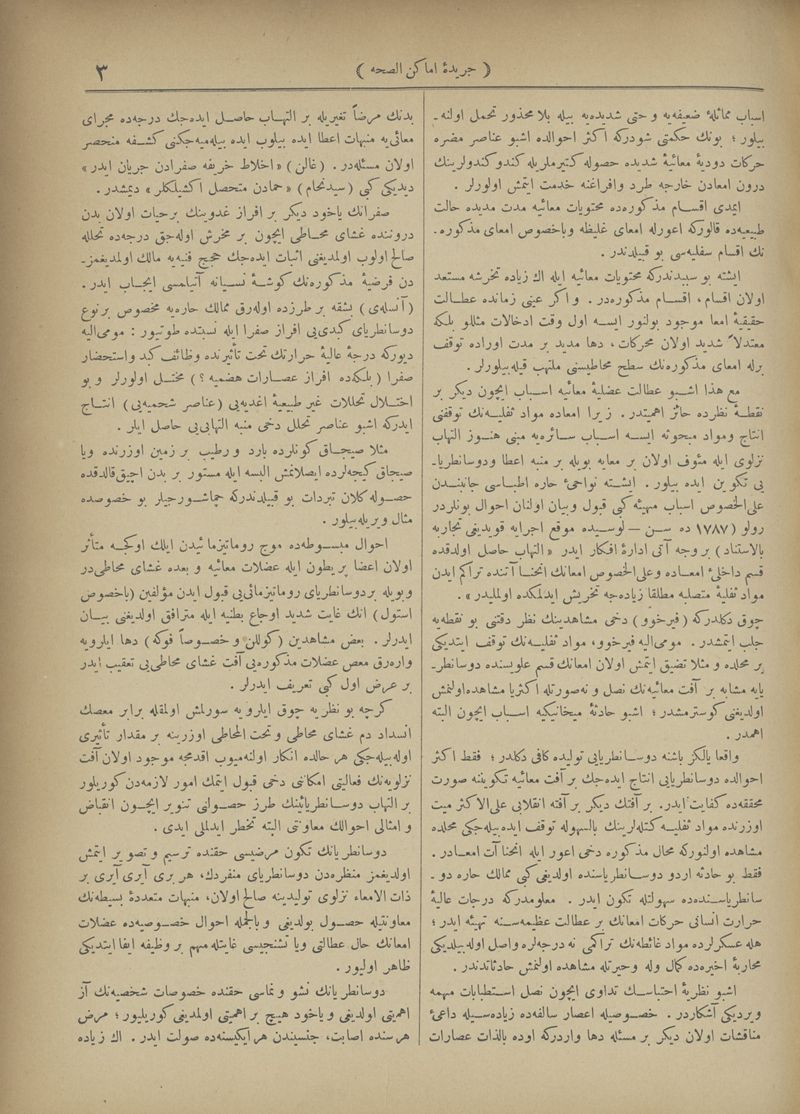 ( جريدۀ اماكن الصحه )
٣
اسباب مماثلۀ ضعيفه‌يه و حتى شديده‌يه بيله بلا محذور تحمل اولنه -
بيلور ؛ بونك حكمتى شودركه اكثر احوالده اشبو عناصر مضره
حركات دوديۀ معائيۀ شديده حصوله كتيرملريله كندو كندولرينك
درون امعادن خارجه طرد وافراغنه خدمت ايتمش اولورلر .
ايمدى اقسام مذكوره‌ده محتويات معائيه مدت مديده حالت
طبيعه‌ده قالوركه اعورله امعاى غليظه وباخصوص امعاى مذكوره .
نك اقسام سفليه‌سى بو قبيلدندر .
ايشته بو سببدندركه محتويات معائيه ايله اك زياده تخرشه مستعد
اولان اقسام ، اقسام مذكوره‌در . و اكر عينى زمانده عطالت
حقيقيۀ امعا موجود بولنور ايسه اول وقت ادخالات مثللو بلكه
معتدلاً شديد اولان محركات ، دها مديد بر مدت اوراده توقف
برله امعاى مذكوره‌نك سطح مخاطيسنى ملتهب قيله‌بيلورلر .
مع هذا اشبو عطالت عضليۀ معائيه اسباب ايچون ديكر بر
نقطۀ نظرده حائز اهميتدر . زيرا امعاده مواد ثفليه‌نك توقفنى
انتاج ومواد مبحوثه ايسه اسباب سائره‌يه مبنى هنوز التهاب
نزلوى ايله مئوف اولان بر معايه بويله بر منبه اعطا ودوسانطريا-
يى تكوين ايده بيلور . ايشته نواحئ حاره اطباسى جانبندن
على‌الخصوص اسباب مهيئه كبى قبول وبيان اولنان احوال بونلردر
رولو (١٧٨٧ ده سن — لوسيده موقع اجرايه قويديغى تجاربه
بالاستناد) بر وجه آتى ادارۀ افكار ايدر « التهاب حاصل اولدقده
قسم داخلئ امعاده وعلى‌الخصوص امعانك انحناآتنده تراكم ايدن
مواد ثفليۀ متصلبه مطلقا زياده‌جه تخريش ايدلمكده اولمليدر » .
چوق دكلدركه (فيرخوو) دخى مشاهدينك نظر دقتنى بو نقطه‌يه
جلب ايتمشدر . مومى‌اليه فيرخوو، مواد ثفليه‌نك توقف ايتديكى
بر محلده و مثلا تضيق ايتمش اولان امعانك قسم علويسنده دوسانطر-
يايه مشابه بر آفت معائيه‌نك نصل و نه‌صورتله اكثريا مشاهده‌اولنمش
اولديغنى كوسترمشدر ؛ اشبو حادثۀ ميخانيكيه اسباب ايچون البته
اهمدر .
واقعا يالكز باشنه دوسانطريايى توليده كافى دكلدر ؛ فقط اكثر
احوالده دوسانطريايى انتاج ايده‌جك بر آفت معائيه تكوينه صورت
محققه‌ده كفايت ايدر. بر آفتك ديكر بر آفته انقلابى على‌الاكثر ميت
اوزرنده مواد ثفليه كتله‌لرينك بالسهوله توقف ايده‌بيله‌جكى محلده
مشاهده اولنوركه محال مذكوره دخى اعور ايله انحناآت امعادر .
فقط بو حادثه اردو دوسانطرياسنده اولديغى كبى ممالك حاره دو -
سانطرياسنده‌ده سهولتله تكون ايدر . معلومدركه درجات عاليۀ
حرارت انسانى حركات امعانك بر عطالت عظيمه‌سنه تهيئه ايدر ؛
هله عسكرلرده مواد غائطه‌نك تراكمى نه درجه‌لره واصل اوله‌بيلديكى
محاربۀ اخيره‌ده كمال وله وحيرتله مشاهده اولنمش حادثاتدندر .
اشبو نظريۀ احتباسك تداوى ايچون نصل استطبابات مهمه
ويرديكى آشكاردر . خصوصيله اعصار سالفه‌ده زياده‌سيله داعئ
مناقشات اولان ديكر بر مسئله دها واردركه اوده بالذات عصارات
بدنك مرضاً تغيريله بر التهاب حاصل ايده‌جك درجه‌ده مجراى
معائى‌يه منبهات اعطا ايده بيلوب ايده بيله‌ميه‌جكنى كشفه منحصر
اولان مسئله‌در . (غالن) « اخلاط خريفه صفرادن جريان ايدر »
ديديكى كبى (سيدنحام) « حمادن متحصل اكشيلكلر » ديمشدر .
صفرانك ياخود ديكر بر افراز غدوينك برحيات اولان بدن
دروننده غشاى مخاطى ايچون بر مخرش اوله‌جق درجه‌ده تحلله
صالح اولوب اولمديغنى اثبات ايده‌جك حجج فنيه‌يه مالك اولمديغمز-
دن فرضيۀ مذكوره‌نك كوشۀ نسيانه آتيلمسى ايجاب ايدر .
(آنسله‌ى) بشقه بر طرزده اوله‌رق ممالك حاره‌يه مخصوص برنوع
دوسانطرياى كبدى‌يى افراز صفرا ايله نسبتده طوتيور : مومى‌اليه
ديوركه درجۀ عاليۀ حرارتك تحت تأثيرنده وظائف كبد واستحضار
صفرا (بلكه‌ده افراز عصارات هضميه ؟) مختل اولورلر و بو
اختلال تحللات غير طبيعيۀ اغديه‌يى (عناصر شحميه‌يى) انتاج
ايدركه اشبو عناصر تحلل دخى منبه التهابى‌يى حاصل ايلر .
مثلا صيجاق كونلرده بارد و رطيب بر زمين اوزرنده ويا
صيجاق كيجه‌لرده ايصلانمش البسه ايله مستور بر بدن آچيق قالدقده
حصوله كلان تبردات بو قبيلدندركه چماشورجيلر بو خصوصده
مثال ويريله‌بيلور .
احوال مبسوطه‌ده موج روماتيزمائيدن ايلك اوكجه متأثر
اولان اعضا بر يطون ايله عضلات معائيه و بعده غشاى مخاطى‌در
وبويله بر دوسانطرياى روماتيزمائى‌يى قبول ايدن مؤلفين (باخصوص
استول) انك غايت شديد اوجاع بطنيه ايله مترافق اولديغنى بيان
ايدرلر . بعض مشاهدين (كوللن و خصوصاً فوكه) دها ايلرويه
واره‌رق معص عضلات مذكوره‌يى آفت غشاى مخاطى‌يى تعقيب ايدر
بر عرض اول كبى تعريف ايدرلر .
كرچه بو نظريه چوق ايلرويه سورلمش اولمقله برابر معصك
انسداد دم غشاى مخاطى و تحت المخاطى اوزرينه بر مقدار تأثيرى
اوله‌بيله‌جكى هر حالده انكار اولنه‌ميوب اقدمجه موجود اولان آفت
نزلويه‌نك فعاليتى امكانى دخى قبول ايتمك امور لازمه‌دن كوريلور
بر التهاب دوسانطريائينك طرز حصولنى تنوير ايچون انقباض
و امثالى احوالك معاونتى البته تخطر ايدلملى ايدى .
دوسانطريانك تكون مرضيسى حقنده ترسيم و تصوير ايتمش
اولديغمز منظره‌دن دوسانطرياى منفردك، هر برى آيرى آيرى بر
ذات الامعاء نزلوى توليدينه صالح اولان، منبهات متعددۀ بسيطه‌نك
معاونتيله حصول بولديغى و بالجمله احوال خصوصيه‌ده عضلات
امعانك حال عطالتى ويا تشنجيسى غايتله مهم بر وظيفه ايفا ايتديكى
ظاهر اوليور .
دوسانطريانك نشو و نماسى حقنده خصوصات شخصيه‌نك آز
اهميتى اولديغى و ياخود هيچ بر اهميتى اولمديغى كوريليور ؛ مرض
هر سنده اصابت، جنسيندن هر ايكيسنده صولت ايدر . اك زياده